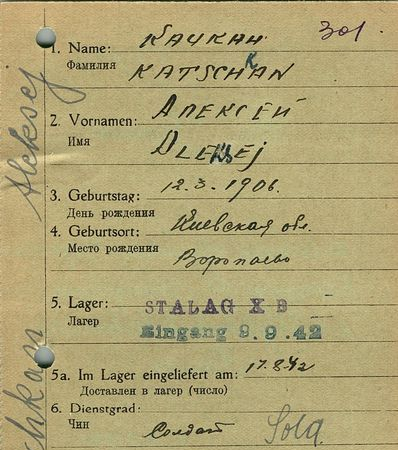 301
1. Name: Качкан
Фамилия KATSCHKAN
2. Vornamen: Алексей
Имя Aleksej
3. Geburtstag: 12.3.1906.
День рождения
4. Geburtsort: Киевская обл.
Место рождения
Воропаево
5. Lager: STALAG X B
Лагер Eingang 9.9.42
5a. Im Lager eingeliefert am: 17.8.42
Доставлен в лагер (число)
6. Dienstgrad:
Чин Солдат Sold.
Aleksej